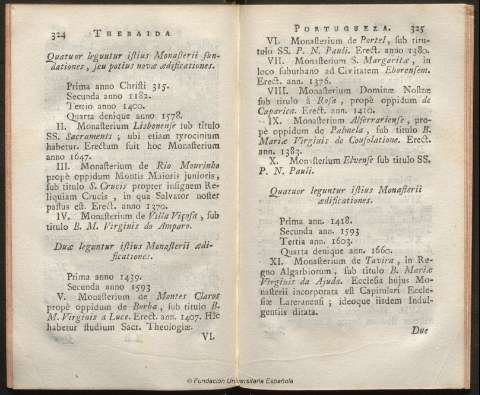 324 THEBAIDA
Quatuor leguntur istius Monasterii fun-
dationes, seu potius novæ ædificationes.
Prima anno Christi 315.
Secunda anno 1182.
Tertio anno 1400.
Quarta denique anno 1578.
II. Monasterium Lisbonense sub titulo
SS. Sacramenti; ubi etiam tyrocinium
habetur. Erectum fuit hoc Monasterium
anno 1647.
III. Monasterium de Rio Mourinho
propè oppidum Montis Maioris junioris,
sub titulo S. Crucis propter insignem Re-
liquiam Crucis, in qua Salvator noster
passus est. Erect. anno 1270.
IV. Monasterium de Villa Viçosa, sub
titulo B. M. Virginis do Amparo.
Duæ leguntur istius Monasterii ædi-
ficationes.
Prima anno 1439.
Secunda anno 1593
V. Monasterium de Montes Claros
propè oppidum de Borba, sub titulo B.
M. Virginis a Luce. Erect. ann. 1407. Hîc
habetur studium Sacr. Theologiæ.
VI.
PORTUGUEZA. 325
VI. Monasterium de Portel, sub ti-
tulo SS. P. N. Pauli. Erect. anno 1380.
VII. Monasterium S. Margaritæ, in
loco suburbano ad Civitatem Eborensem.
Erect. ann. 1376.
VIII. Monasterium Dominæ Nostræ
sub titulo à Rosa, propè oppidum de
Caparica. Erect. ann. 1410.
IX. Monasterium Alferrariense, pro-
pè oppidum de Palmela, sub titulo B.
Mariæ Virginis de Consolatione. Erect.
ann. 1383.
X. Monasterium Elvense sub titulo SS.
P. N. Pauli.
Quatuor leguntur istius Monasterii
ædificationes.
Prima ann. 1418.
Secunda ann. 1593
Tertia ann. 1603.
Quarta denique ann. 1660.
XI. Monasterium de Tavira, in Re-
gno Algarbiorum, sub titulo B. Mariæ
Virginis da Ajuda. Ecclesia hujus Mo-
nasterii incorporata est Capitulari Eccle-
siæ Lateranensi; ideoque iisdem Indul-
gentiis ditata.
Duæ
© Fundación Universitaria Española